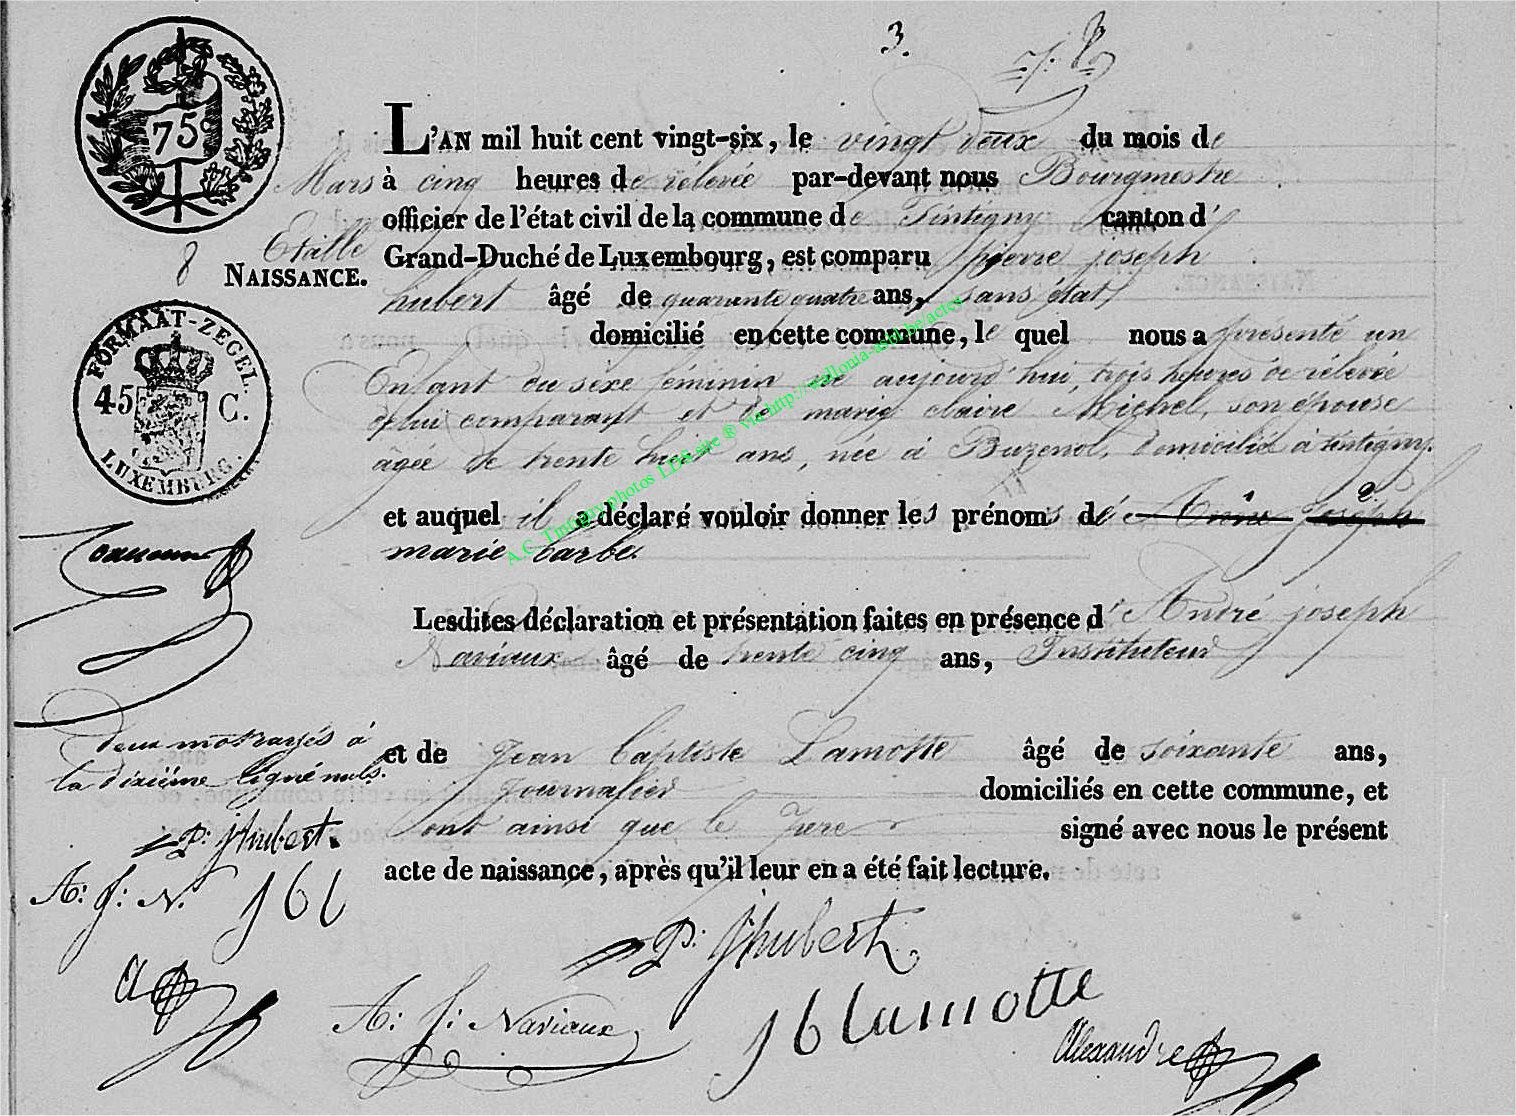 3.
75
L'AN mil huit cent vingt-six, le vingt deux du mois de
Mars à cinq heures de rélevée par-devant nous Bourgmestre
officier de l'état civil de la commune de Tintigny canton d'
Etalle
8
NAISSANCE.
Grand-Duché de Luxembourg, est comparu pierre joseph
hubert âgé de quarante quatre ans, sans état
domicilié en cette commune, le quel nous a presenté un
Enfant du sèxe féminin né aujourd'hui, trois heures de rélevée
de lui comparant et de marie claire Michel, son épouse
âgée de trente huit ans, née à Buzenol, domiciliée à tintigny.
et auquel il a déclaré vouloir donner les prénoms de Joseph
marie barbe.
Lesdites déclaration et présentation faites en présence d'André joseph
Naviaux âgé de trente cinq ans, Instituteur
et de Jean baptiste Lamotte âgé de soixante ans,
journalier domiciliés en cette commune, et
ont ainsi que le pere signé avec nous le présent
acte de naissance, après qu'il leur en a été fait lecture.
FORMAAT-ZEGEL.
45 C.
LUXEMBURG.
deux mots rayés à
la dixième ligne nuls.
P. jhubert.
A: J: N.
j b l
P. jhubert
A: J: Naviaux
j b lamotte
Alexandre
A.C. Tintigny photos LDS site ® via http://wallonia-asbl.be/actes